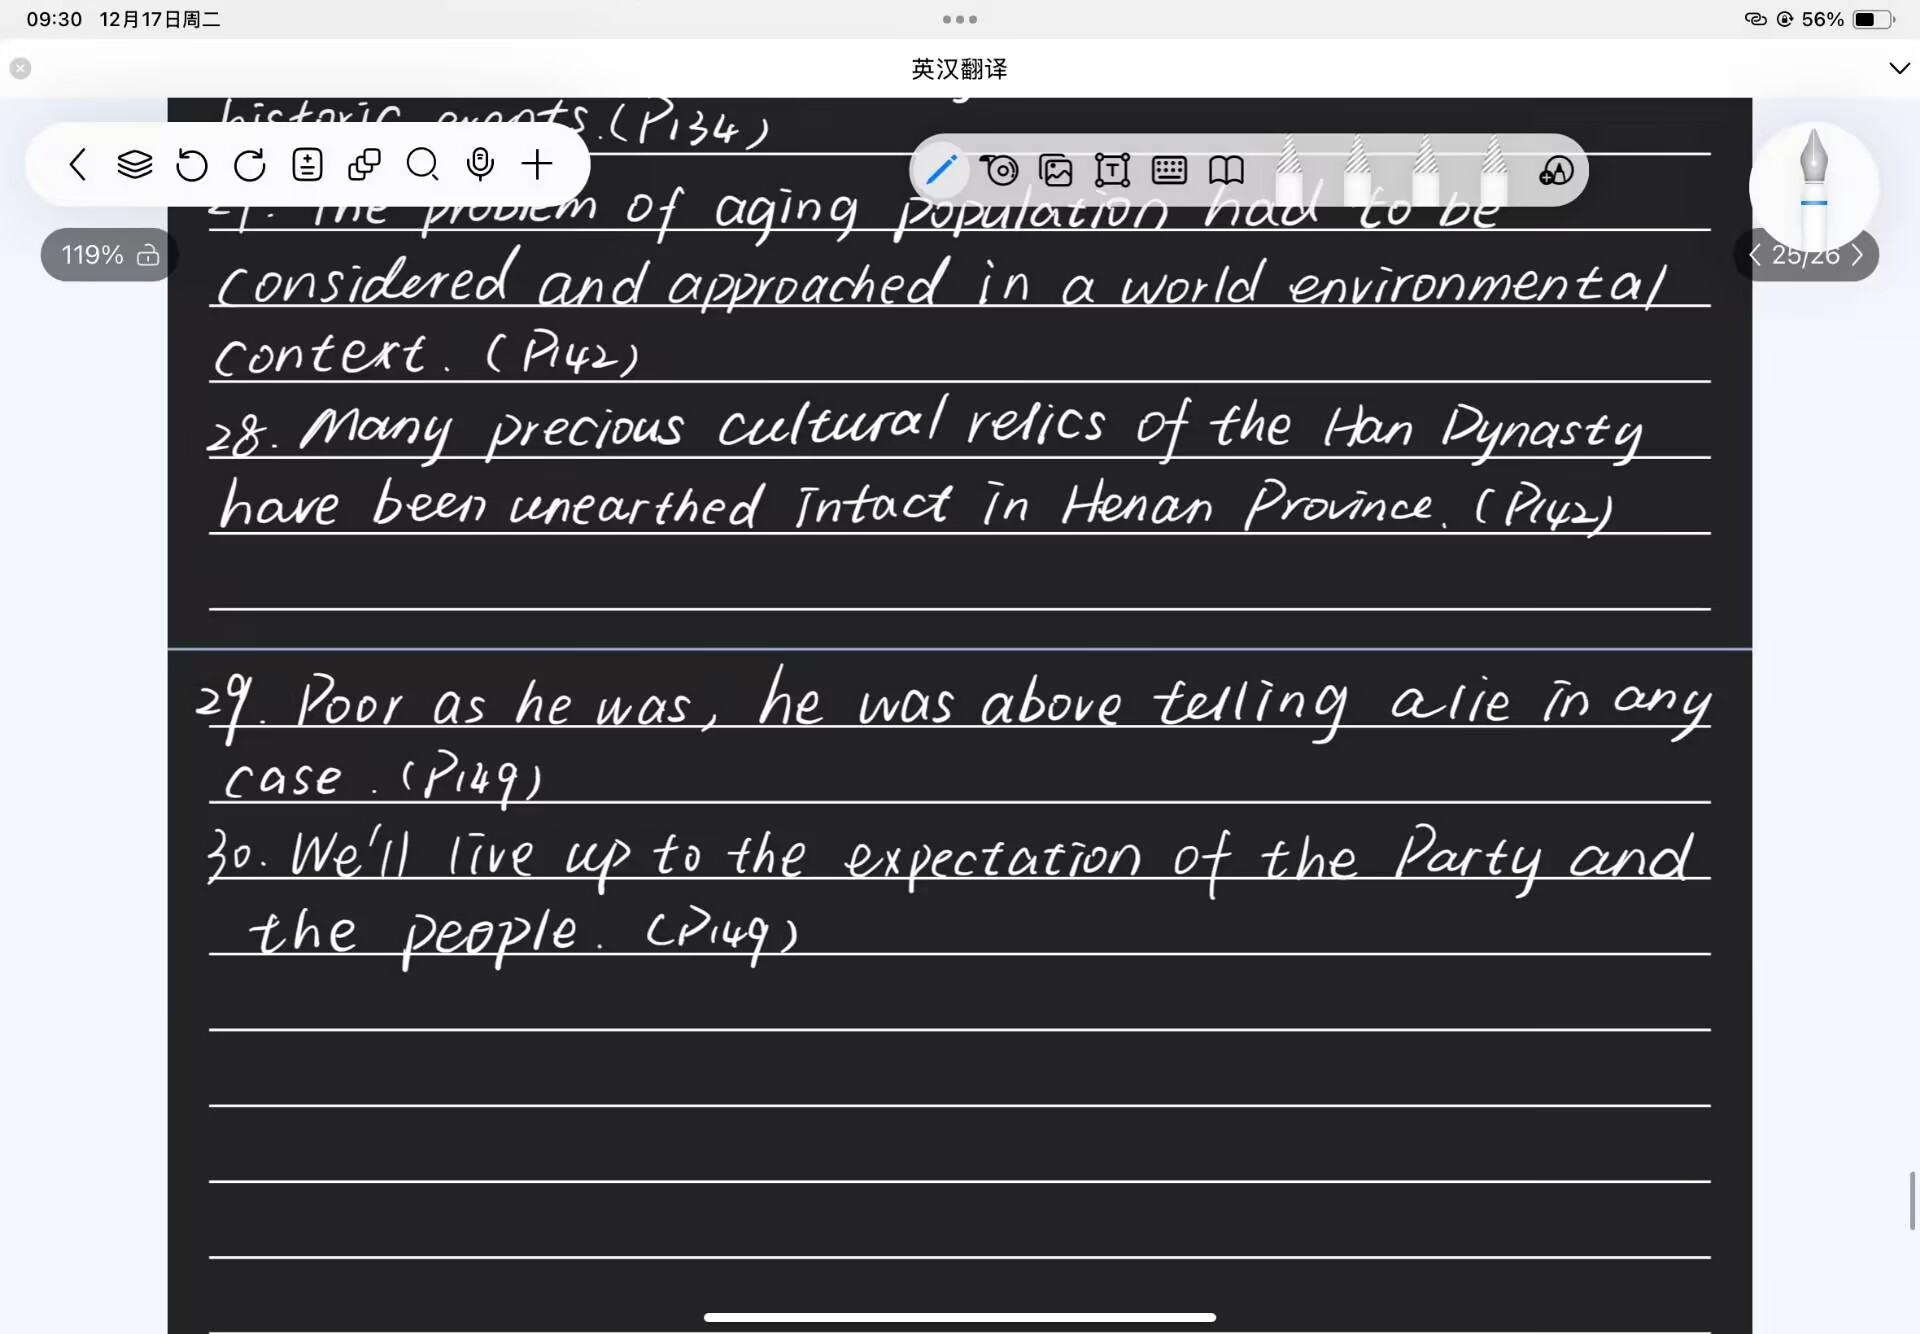 09:30 12月17日周二
56%
英汉翻译
historic events. (P134)
27. The problem of aging population had to be
119%
25/26
considered and approached in a world environmental
context. (P142)
28. Many precious cultural relics of the Han Dynasty
have been unearthed intact in Henan Province. (P142)
29. Poor as he was, he was above telling a lie in any
case. (P149)
30. We'll live up to the expectation of the Party and
the people. (P149)